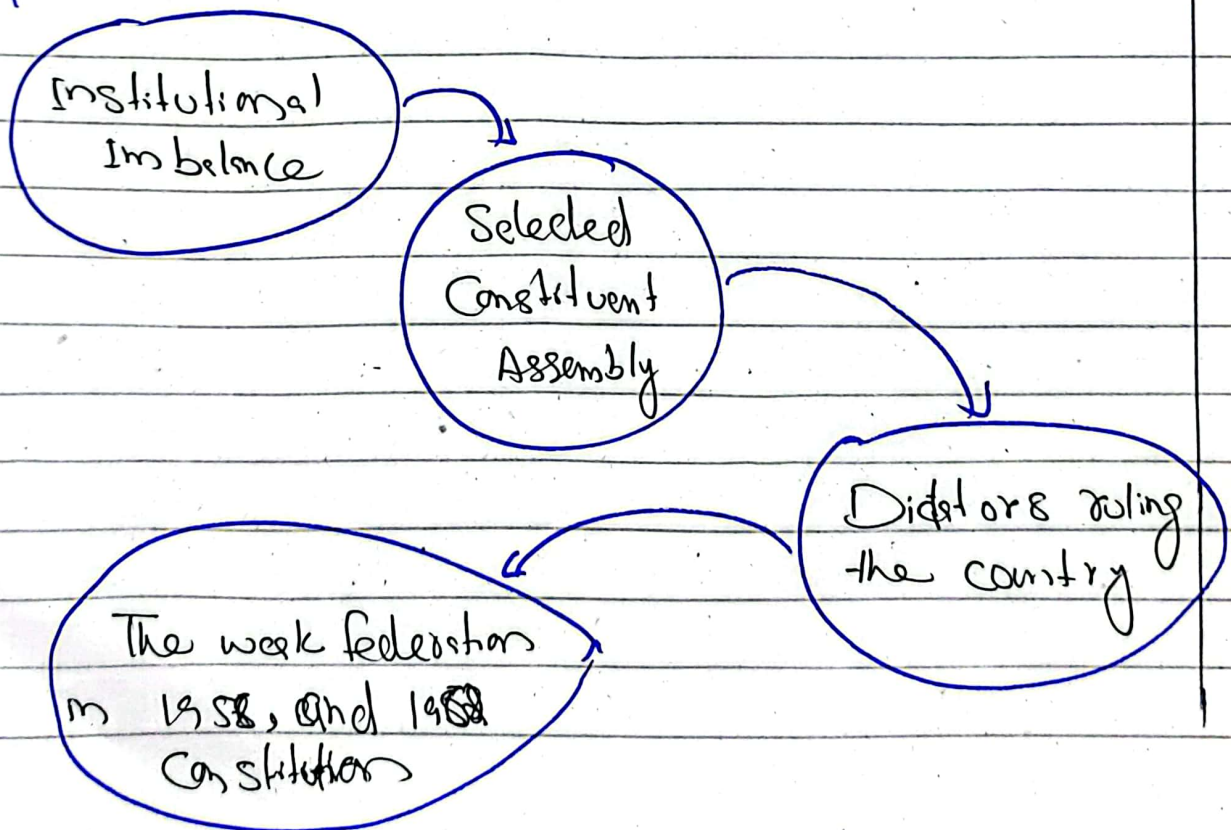 Institutional
Imbalance
Selected
Constituent
Assembly
Dictators ruling
the country
The weak federation
in and
Constitution